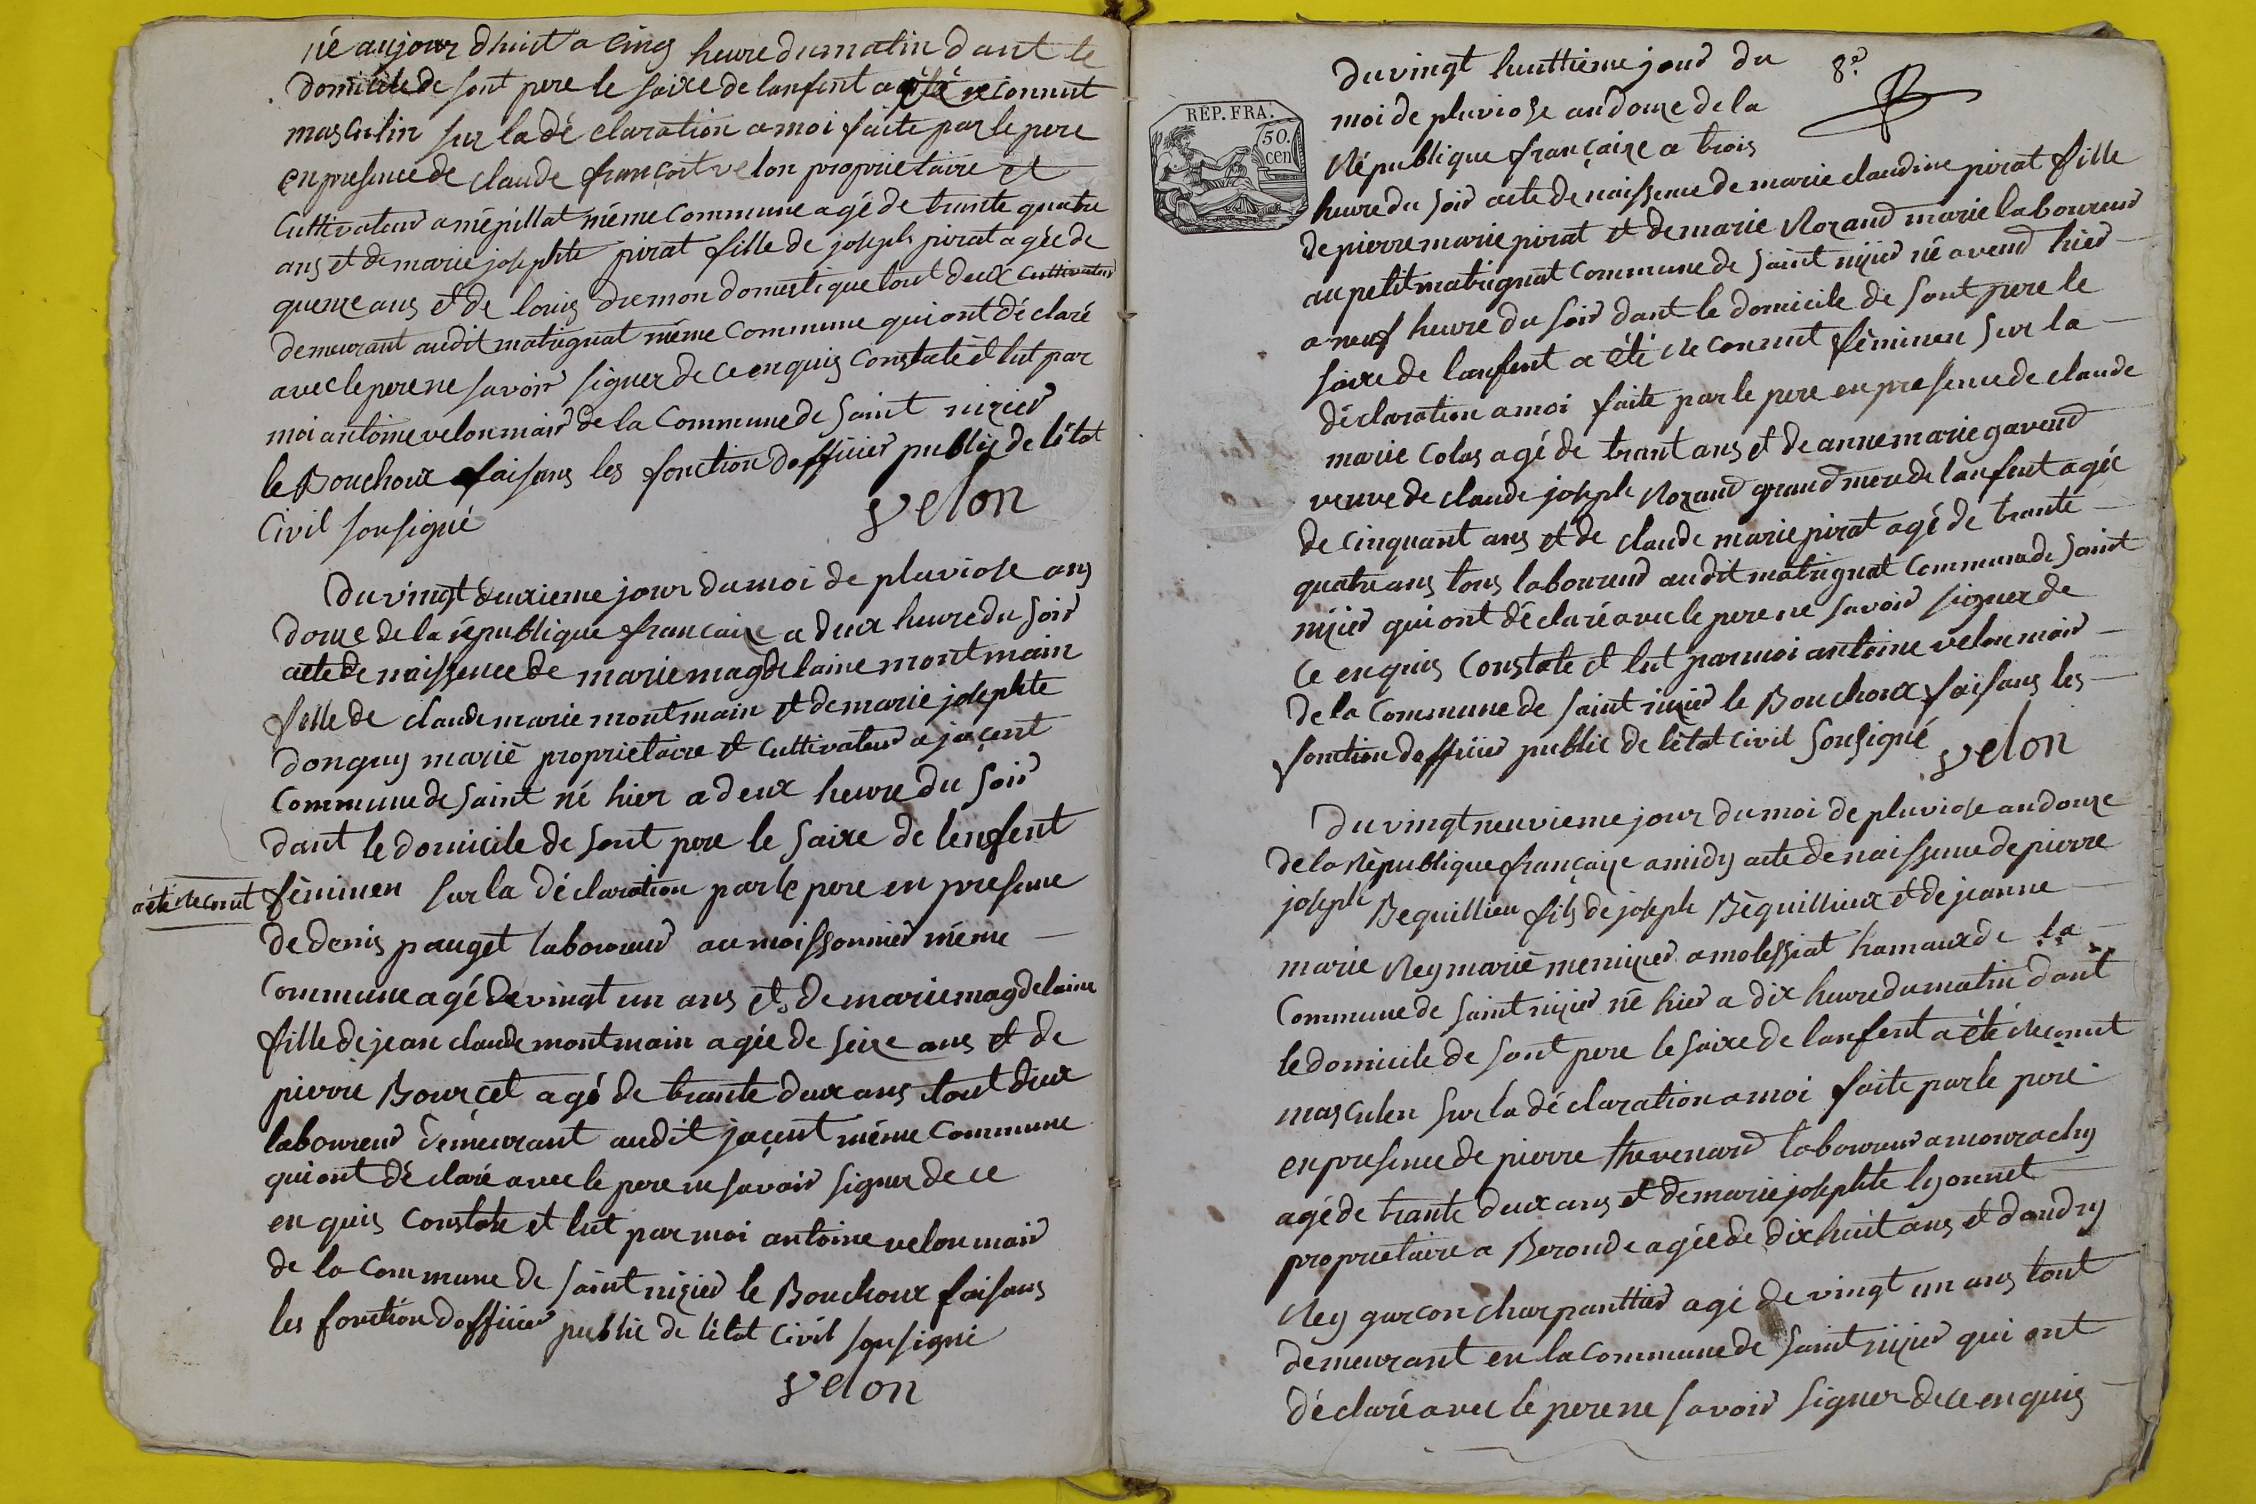 né aujour dhuit a cinq heure du matin dant le
domicile de sont pere le saixe de lanfent a été reconnut
masculin sur la dé claration a moi faite par le pere
en presence de claude françoit velon proprietaire et
Cultivateur a mépillat méme Commune agé de trante quatre
ans et de marie josephte pirat fille de joseph pirat agée de
quenze ans et de louis dremon domestique tout deux Cultivateur
demeurant audit matrignat méme Commune qui ont dé claré
avec le pere ne savoir signer de ce enquis Constaté et lut par
moi antoine velon mair de la Commune de saint nizier
le Bouchoux faisans les fonction dofficier public de létat
Civil sousigné
velon
Du vingt deuxieme jour du moi de pluviose ans
douze de la république francaize a deux heure du soir
acte de naissence de marie magdelaine montmain
fille de claude marie montmain et de marie josephte
donguy marié proprietaire et Cultivateur a jaçent
Commune de saint né hier a deux heure du soir
dant le domicile de sont pere le saixe de lenfent
a été reconut
féminen sur la déclaration par le pere en presence
de denis pauget laboureur au moissonnier méme
Commune agé de vingt un ans et de marie magdelaine
fille de jean claude montmain agée de seize ans et de
pierre Bourçet agé de trante deux ans tout deux
laboureur demeurant audit jaçent méme Commune
qui ont dé claré avec le pere ne savoir signer de ce
en quis Constate et lut par moi antoine velon mair
de la Commune de saint nizier le Bouchoux faisans
les fonction dofficier public de létat Civil sousigné
velon
8e
REP. FRA.
50.
cen
Du vingt huittieme jour du
moi de pluviose an douze de la
République françaize a trois
heure du soir acte de naissence de marie claudine pirat fille
de pierre marie pirat et de marie Rozand marie laboureur
au petit matrignat Commune de saint nizier né avend hier
a neuf heure du soir dant le domicile de sont pere le
saixe de lanfent a été reconnut féminen sur la
déclaration a moi faite par le pere en presence de claude
marie Colas agé de trant ans et de anne marie gavend
veuve de claude joseph Rozand grand mere de lanfent agée
de cinquant ans et de claude marie pirat agé de trante
quatre ans tous laboureur audit matrignat Commune de saint
nizier qui ont déclaré avec le pere ne savoir signer de
ce enquis Constate et lut par moi antoine velon mair
de la Commune de saint nizier le Bouchoux faisans les
fonction dofficier public de létat civil sousigné
velon
Du vingt neuvieme jour du moi de pluviose an douze
de la République françaize a midy acte de naissence de pierre
joseph Bequillieu fils de joseph Béquillieux et de jeanne
marie Rey marié menizier a molessiat hamaux de la
Commune de saint nizier né hier a dix heure du matin dant
le domicile de sont pere le saixe de lanfent a été reconut
masculen sur la dé claration a moi faite par le pere
en presence de pierre thevenard laboureur a mourachy
agé de trante deux ans et de marie josephte lyonnet
proprietaire a Beronde agée de dix huit ans et dandry
Rey garcon charpanttier agé de vingt un ans tout
demeurant en la commune de saint nizier qui ont
déclaré avec le pere ne savoir signer de ce enquis